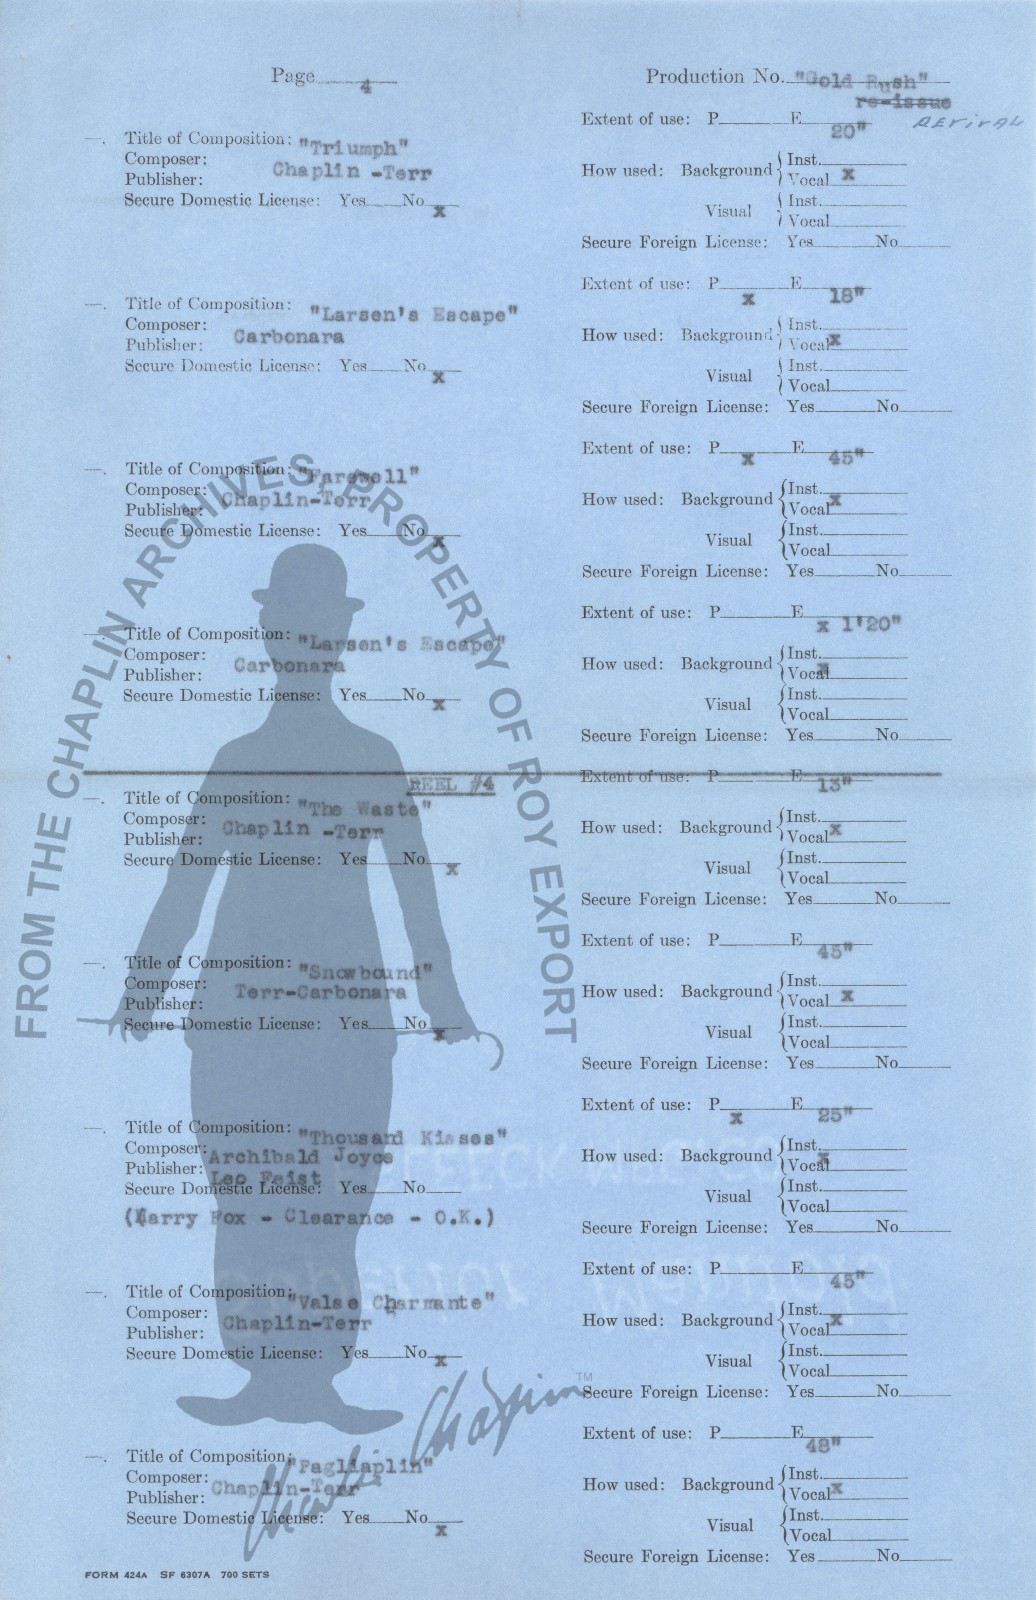 Page 4
Production No. "Gold Rush"
re-issue
REVIVAL
Title of Composition: "Triumph"
Composer: Chaplin -Terr
Publisher:
Secure Domestic License: Yes No x
Extent of use: P E 20"
How used: Background Inst.
Vocal x
Visual Inst.
Vocal
Secure Foreign License: Yes No
Title of Composition: "Larsen's Escape"
Composer: Carbonara
Publisher:
Secure Domestic License: Yes No x
Extent of use: P x E 18"
How used: Background Inst.
Vocal x
Visual Inst.
Vocal
Secure Foreign License: Yes No
Title of Composition: "Farewell"
Composer: Chaplin-Terr
Publisher:
Secure Domestic License: Yes No x
Extent of use: P x E 45"
How used: Background Inst.
Vocal x
Visual Inst.
Vocal
Secure Foreign License: Yes No
Title of Composition: "Larsen's Escape"
Composer: Carbonara
Publisher:
Secure Domestic License: Yes No x
Extent of use: P E x 1'20"
How used: Background Inst.
Vocal x
Visual Inst.
Vocal
Secure Foreign License: Yes No
REEL #4
Title of Composition: "The Waste"
Composer: Chaplin -Terr
Publisher:
Secure Domestic License: Yes No x
Extent of use: P E 13"
How used: Background Inst.
Vocal x
Visual Inst.
Vocal
Secure Foreign License: Yes No
Title of Composition: "Snowbound"
Composer: Terr-Carbonara
Publisher:
Secure Domestic License: Yes No x
Extent of use: P E 45"
How used: Background Inst.
Vocal x
Visual Inst.
Vocal
Secure Foreign License: Yes No
Title of Composition: "Thousand Kisses"
Composer: Archibald Joyce
Publisher: Leo Feist
Secure Domestic License: Yes No
(Harry Fox - Clearance - O.K.)
Extent of use: P x E 25"
How used: Background Inst.
Vocal x
Visual Inst.
Vocal
Secure Foreign License: Yes No
Title of Composition: "Valse Charmante"
Composer: Chaplin-Terr
Publisher:
Secure Domestic License: Yes No x
Extent of use: P E 45"
How used: Background Inst.
Vocal x
Visual Inst.
Vocal
Secure Foreign License: Yes No
Title of Composition: "Pagliaplin"
Composer: Chaplin-Terr
Publisher:
Secure Domestic License: Yes No x
Extent of use: P E 48"
How used: Background Inst.
Vocal x
Visual Inst.
Vocal
Secure Foreign License: Yes No
FORM 424A SF 6307A 700 SETS
FROM THE CHAPLIN ARCHIVES, PROPERTY OF ROY EXPORT
Charlie Chaplin TM